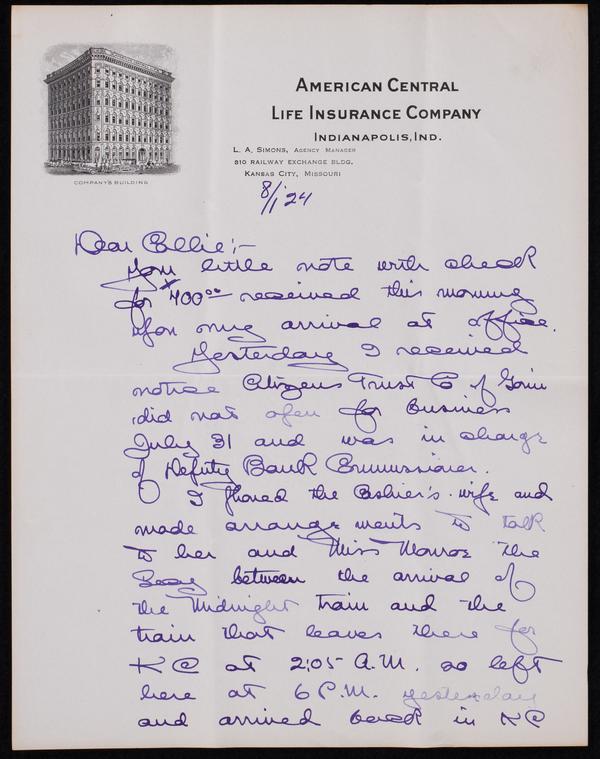 AMERICAN CENTRAL
LIFE INSURANCE COMPANY
INDIANAPOLIS, IND.
L. A. SIMONS, AGENCY MANAGER
810 RAILWAY EXCHANGE BLDG.
KANSAS CITY, MISSOURI
COMPANY'S BUILDING
8/1 '24
Dear Ellie:-
Your little note with check
for $400.00 received this morning
upon my arrival at office.
Yesterday I received
notice Citizens Trust Co of
did not open for business
July 31 and was in charge
of Deputy Bank Commissioner.
I phoned the Cashier's wife and
made arrangements to talk
to her and Miss Monroe the
between the arrival of
the Midnight train and the
train that leaves there for
KC at 2:05 A.M. so left
here at 6 P.M. yesterday
and arrived back in KC